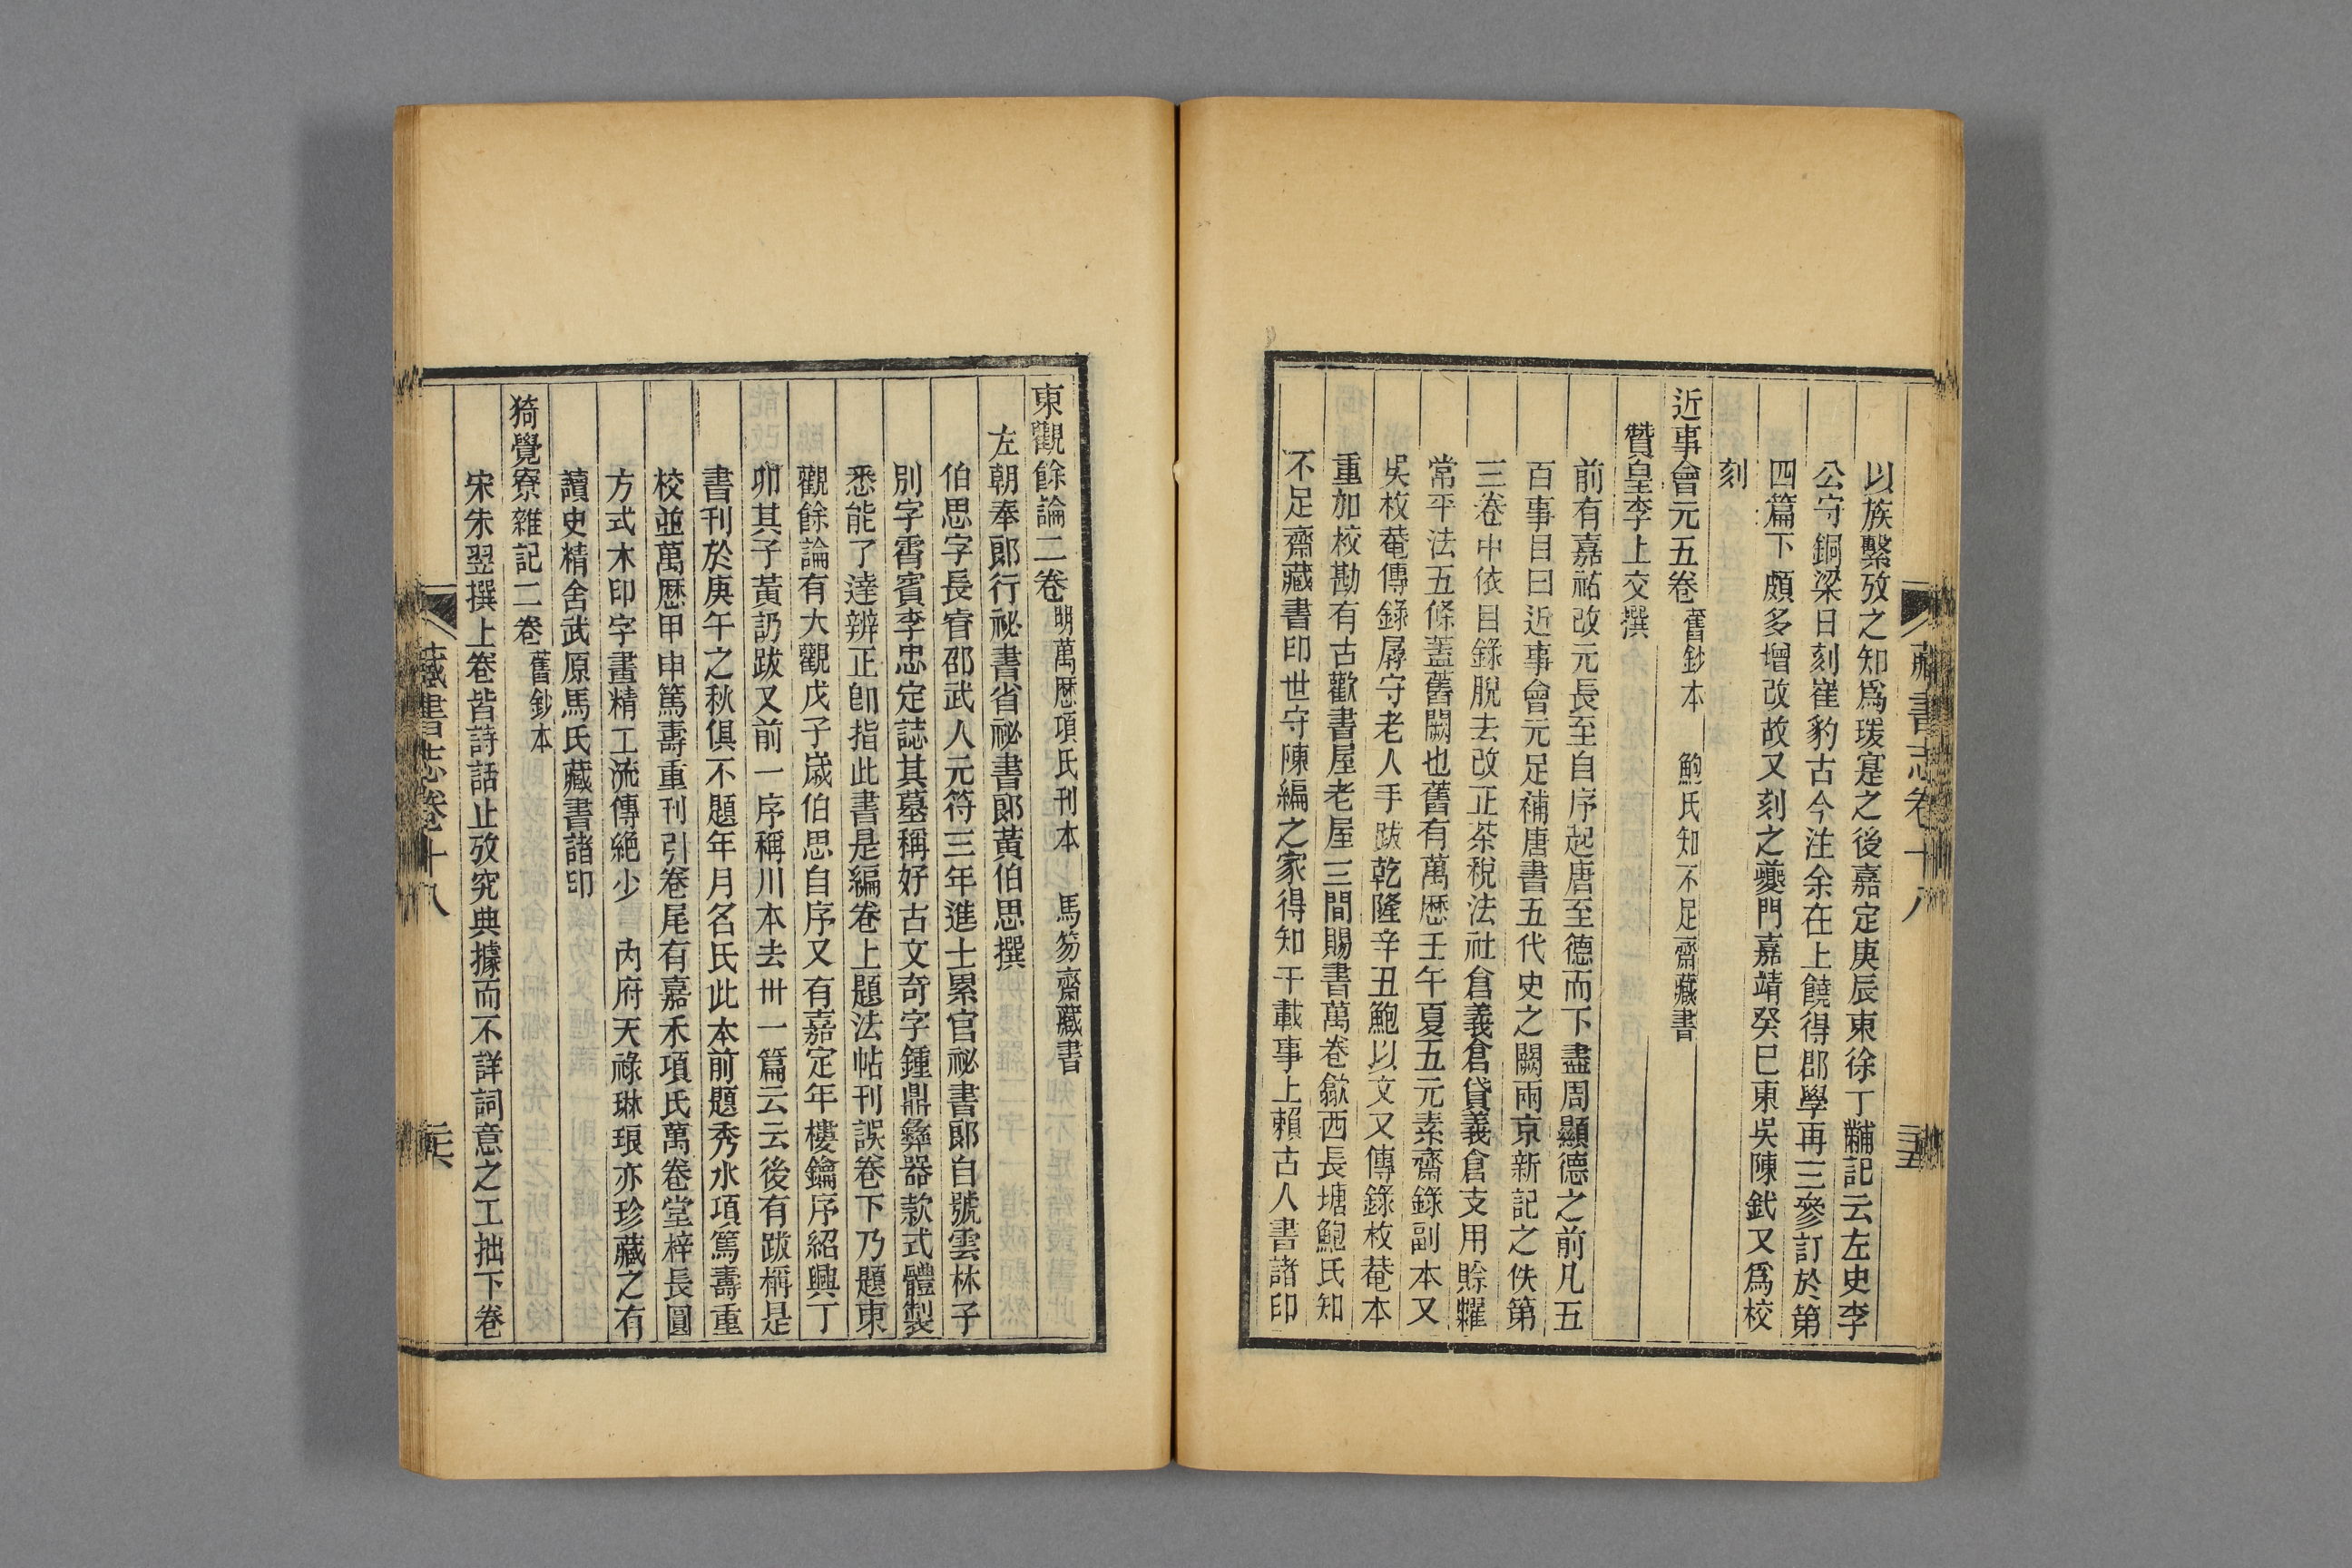 藏書志卷十八
二十五
以族繫攷之知爲瑗寔之後嘉定庚辰東徐丁黼記云左史李
公守銅梁日刻崔豹古今注余在上饒得郡學再三參訂於第
四篇下頗多增改故又刻之夔門嘉靖癸巳東吳陳鉽又爲校
刻
近事會元五卷 舊鈔本 鮑氏知不足齋藏書
贊皇李上交撰
前有嘉祐改元長至自序起唐至德而下盡周顯德之前凡五
百事目曰近事會元足補唐書五代史之闕兩京新記之佚第
三卷中依目錄脫去改正茶稅法社倉義倉貸義倉支用賒糶
常平法五條蓋舊闕也舊有萬厯壬午夏五元素齋錄副本又
吳枚菴傳錄孱守老人手跋乾隆辛丑鮑以文又傳錄枚菴本
重加校勘有古歡書屋老屋三間賜書萬卷歙西長塘鮑氏知
不足齋藏書印世守陳編之家得知千載事上賴古人書諸印
東觀餘論二卷 明萬厯項氏刊本 馬笏齋藏書
左朝奉郎行祕書省祕書郎黃伯思撰
伯思字長睿邵武人元符三年進士累官祕書郎自號雲林子
別字霄賓李忠定誌其墓稱好古文奇字鍾鼎彝器款式體製
悉能了達辨正卽指此書是編卷上題法帖刊誤卷下乃題東
觀餘論有大觀戊子嵗伯思自序又有嘉定年樓鑰序紹興丁
卯其子黃訒跋又前一序稱川本去卅一篇云云後有跋稱是
書刊於庚午之秋俱不題年月名氏此本前題秀水項篤壽重
校並萬厯甲申篤壽重刊引卷尾有嘉禾項氏萬卷堂梓長圓
方式木印字畫精工流傳絶少 內府天祿琳琅亦珍藏之有
讀史精舍武原馬氏藏書諸印
猗覺寮雜記二卷 舊鈔本
宋朱翌撰上卷皆詩話止攷究典據而不詳詞意之工拙下卷
藏書志卷十八
二十六